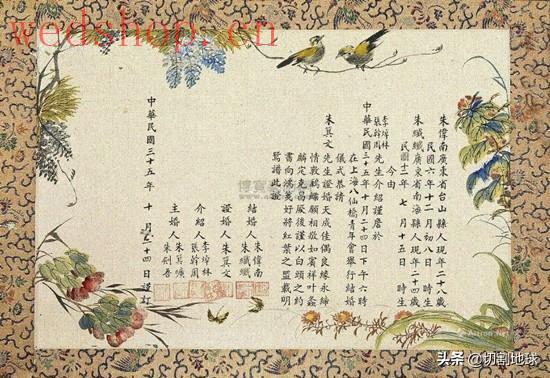 wedshop.cn
朱偉南廣東省台山縣人現年二十八歲
民國六年十二月初八日 時生
朱纖纖廣東省南海縣人現年二十四歲
民國十二年 七月十五日 時生
今由
李埁林
張幹周
先生介紹謹居於
中華民國三十五年十月二十四日下午六時
在上海八仙橋青年會舉行結婚
儀式恭請
朱莫文先生證婚天成佳偶良緣永締
情敦鶼鰈願相敬如賓祥叶螽
麟定克昌厥後謹以白頭之約
書向鴻箋好將紅葉之盟載明
鴛譜此證
結婚人 朱偉南
朱纖纖
證婚人 朱莫文
介紹人 李埁林
張幹周
主婚人 朱
朱劍吾
中華民國三十五年 十月二十四日謹訂
頭条 @切割地球